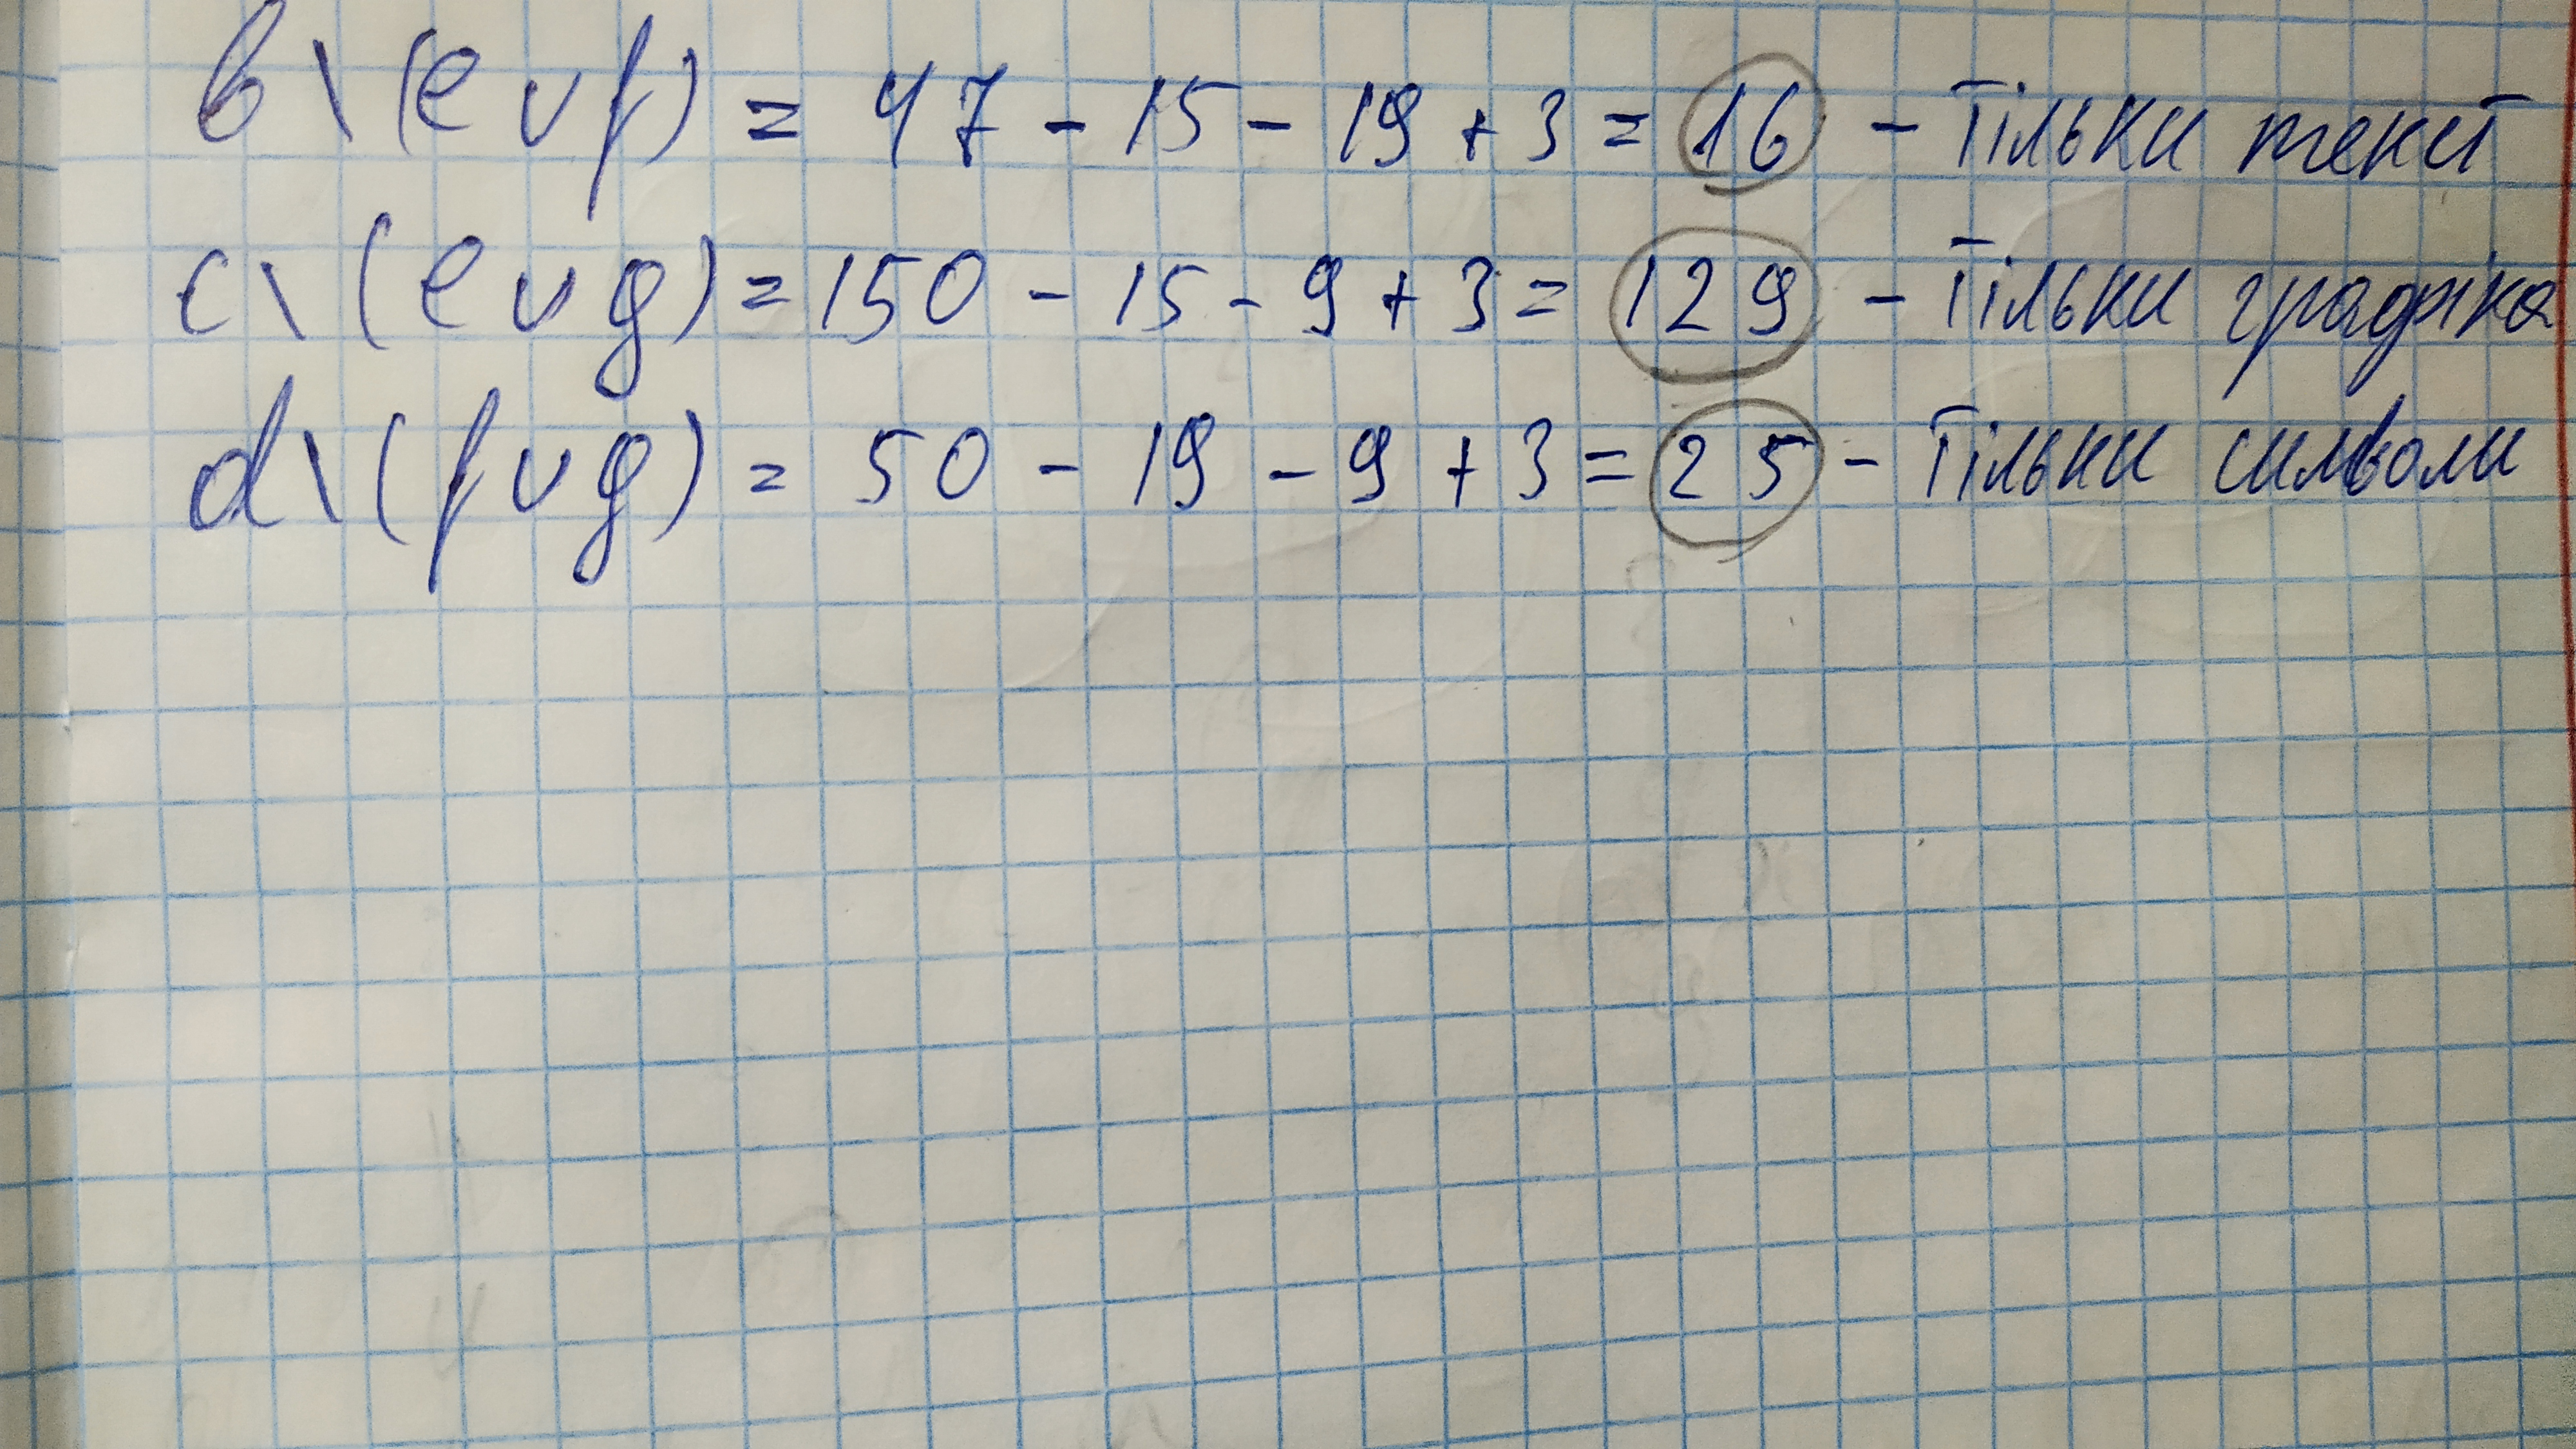 b \ (e ∪ f) = 47 - 15 - 19 + 3 = 16 - Тільки текст
c \ (e ∪ g) = 150 - 15 - 9 + 3 = 129 - Тільки графіка
d \ (f ∪ g) = 50 - 19 - 9 + 3 = 25 - Тільки символи